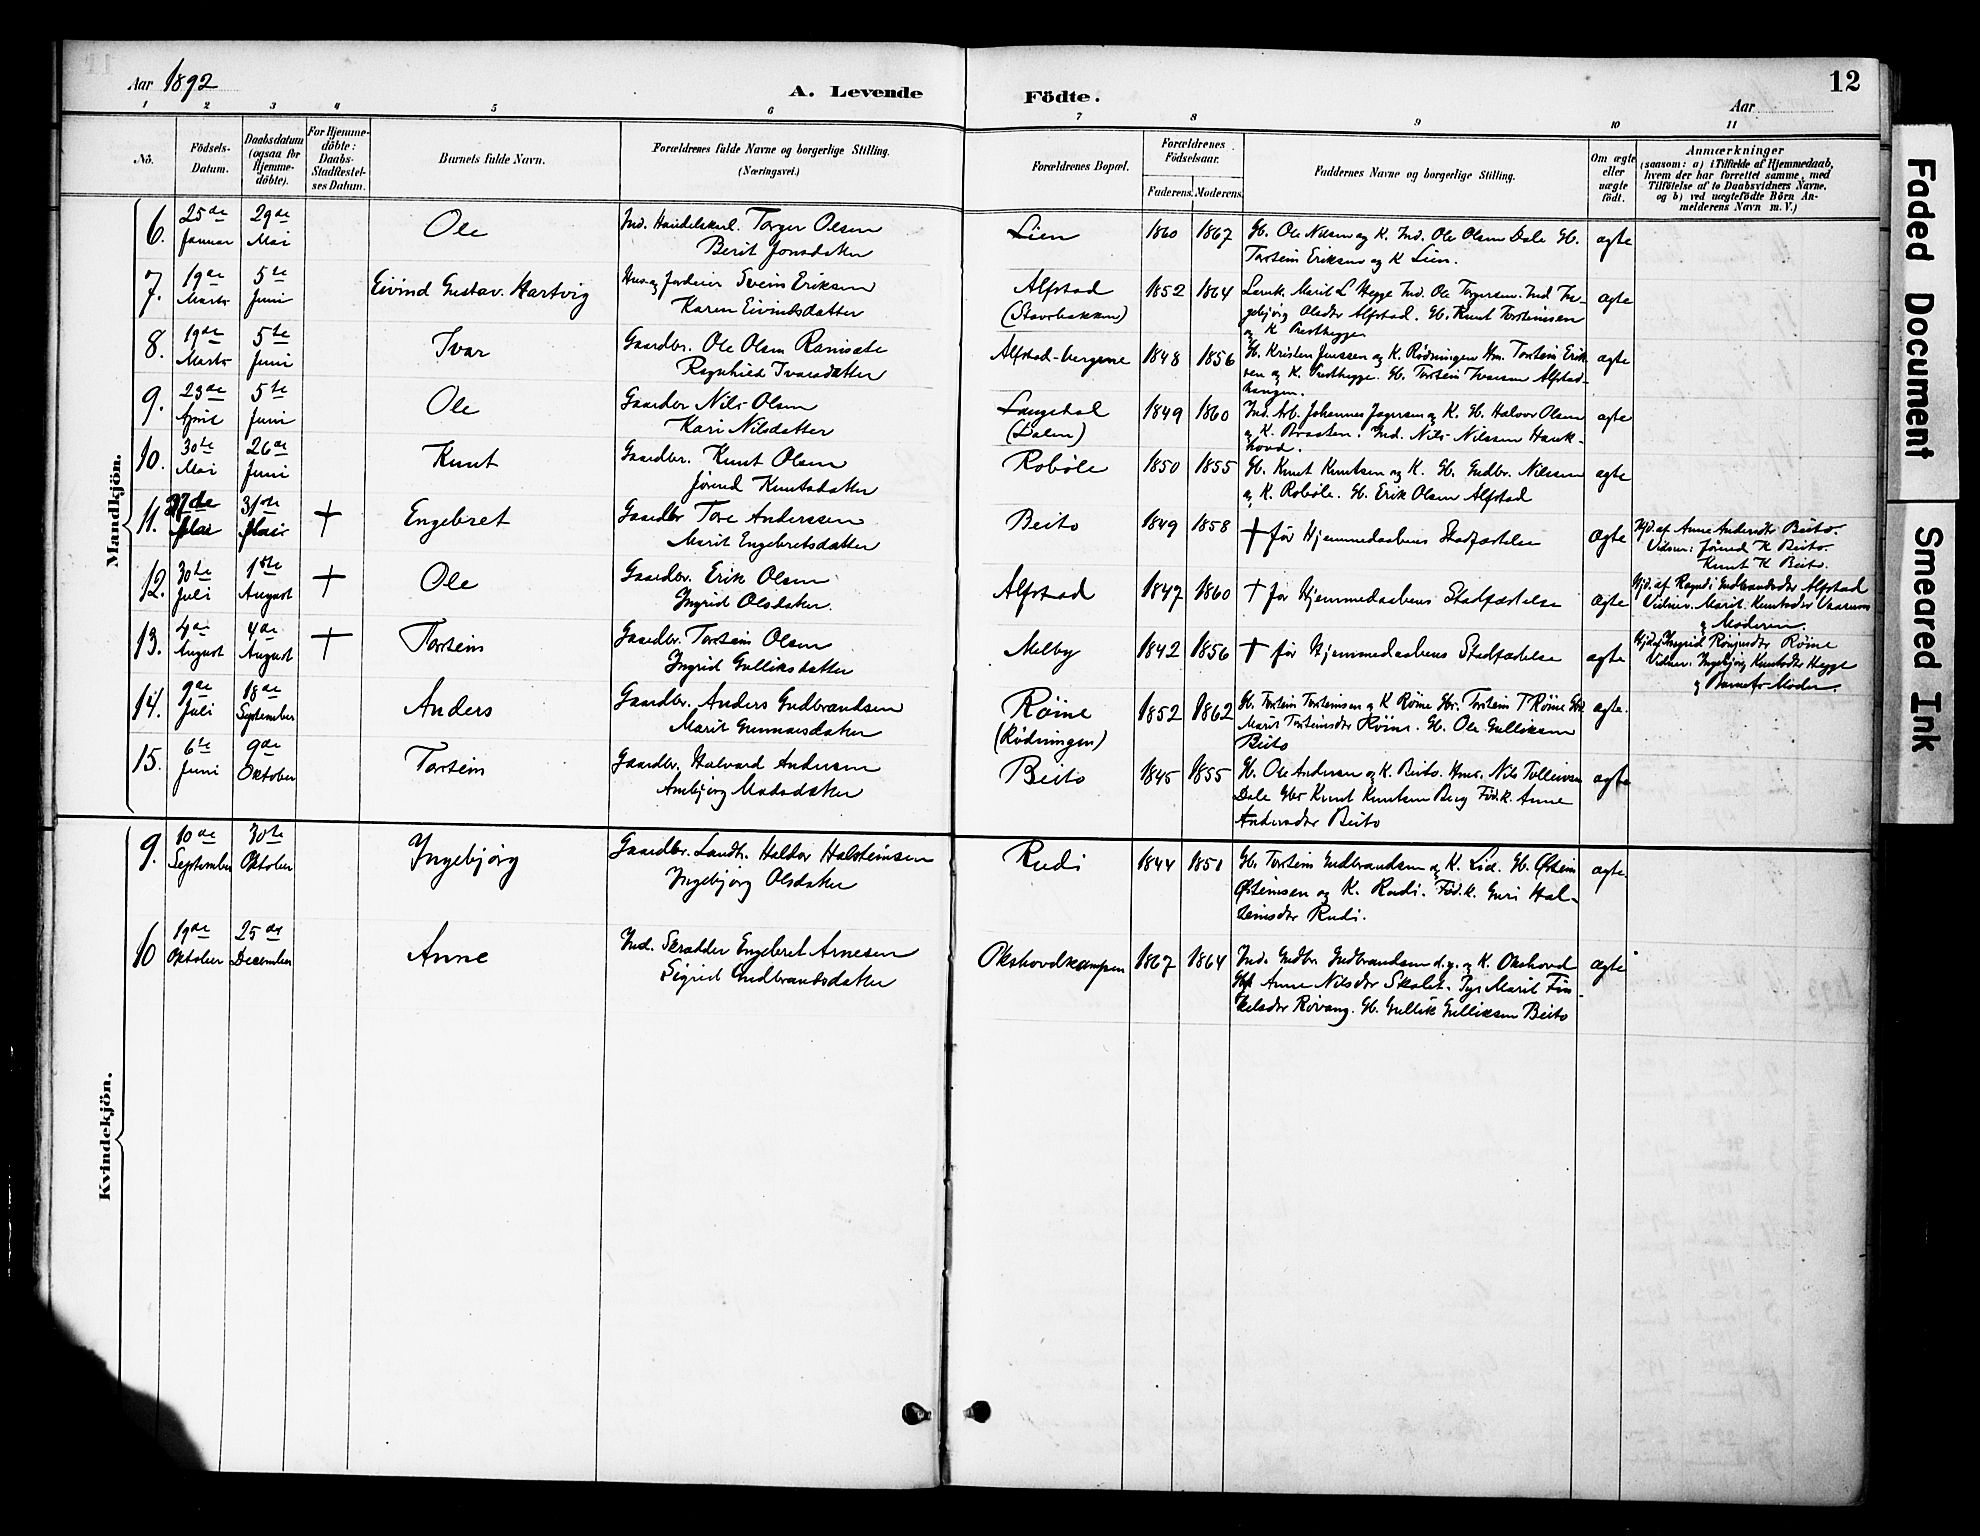 12
Aar 1892
A. Levende
Födte.
Aar
1 2 3 4 5 6 7 8 9 10 11
No.
Födsels-
Datum.
Daabsdatum
(ogsaa for
Hjemme-
döbte).
For Hjemme-
döbte:
Daabs-
Stadfæstel-
ses Datum.
Barnets fulde Navn.
Forældrenes fulde Navne og borgerlige Stilling.
(Næringsvei.)
Forældrenes Bopæl.
Forældrenes
Födselsaar.
Faderens. Moderens.
Faddernes Navne og borgerlige Stilling.
Om ægte
eller
uægte
født.
Anmærkninger
(saasom: a) i Tilfælde af Hjemmedaab,
hvem der har forrettet samme, med
Tilföielse af to Daabsvidners Navne,
og b) ved uægtefödte Börn An-
melderens Navn m. V.)
Mandkjön.
6. 25de Januar 29de Mai Ole
Ind. Handelskarl. Torger Olsen
Berit Jonsdatter
Lien 1860 1867
Gb. Ole Nilsen og K. Ind. Ole Olsen Dale Gb.
Torstein Eriksen og K Lien.
ægte
7. 19de Marts 5te Juni Eivind Gustav. Hartvig
Hus og Jordeier Svein Eriksen
Karen Eivindsdatter
Alfstad
(Stavebakken)
1852 1864
Marit L Hegge Ind. Ole Torgersen. Ind In-
gebjörg Olsdtr Alfstad. Gb. Knut Torsteinsen
og K Presthegge
ægte
8. 19de Marts 5te Juni Ivar
Gaardbr. Ole Olsen Ramsate
Ragnhild Ivarsdatter
Alfstad-bergene 1848 1856
Gb. Kristen Jenssen og K. Rødningen Torstein Erik-
sen og K. Presthegge. Gb. Torstein Ivarsen Alfstad-
haugen.
ægte
9. 23de April 5te Juni Ole
Gaardbr Nils Olsen
Kari Nilsdatter
Langehal
(Dalen)
1849 1860
Ind. Arb. Johannes og K. Gb. Halvor Olsen
og K. Braaten. Ind. Nils Nilssen Hauk-
hovd.
ægte
10. 30te Mai 26de Juni Knut
Gaardbr. Knut Olsen
Jørend Knutsdatter
Robøle 1850 1855
Gb. Knut Knutsen og K. Gb. Gudbr. Nilssen
og K. Robøle. Gb. Erik Olsen Alfstad
ægte
11. 27de Mai 31te Mai + Engebret
Gaardbr Tore Anderssen
Marit Engebretsdatter
Beito 1849 1858
+ før Hjemmedaabens Stadfæstelse
ægte
Hjd. af Anne Andersdtr Beito.
Vidner: Jørend K Beito.
Knut K Beito.
12. 30te Juli 1ste August + Ole
Gaardbr. Erik Olsen
Ingrid Olsdatter.
Alfstad 1847 1860
+ før Hjemmedaabens Stadfæstelse
ægte
Hjd. af Ragndi Gudbrandsdtr Alfstad
Vidner. Marit Knutsdtr
og Moderen.
13. 4de August 4de August + Torstein
Gaardbr. Torstein Olsen
Ingrid Gulliksdatter
Melby 1842 1856
+ før Hjemmedaabens Stadfæstelse
ægte
Ingrid Røine
Vidner. Ingebjørg Knutsdtr Hegge
og Barnets Moder.
14. 9de Juli 18de September Anders
Gaardbr. Anders Gudbrandsen
Marit Gunnarsdatter
Røine
(Rødningen)
1852 1862
Gb. Torstein Torsteinsen og K Røine Torstein T Røine
Marit Torsteinsdtr Røine. Gb. Ole Gulliksen
Beito
ægte.
15. 6te Juni 9de Oktober Torstein
Gaardbr. Halvard Andersen
Ambjørg Madsdatter
Beito 1845 1855
Gb. Ole Andersen og K. Beito. Nils Tolleivsen
Dale Knut Knutsen Berg Föd.K. Anne
Andersdtr Beito
ægte
Kvindekjön.
9. 10de September 30te Oktober Ingebjørg
Gaardbr. Landh. Haldor Halsteinsen
Ingebjørg Olsdatter
Rudi 1844 1851
Gb. Torstein Gudbrandsen og K. Lid. Gb. Østein
Østeinsen og K. Rudi. Föd.K. Guri Hal-
steinsdtr Rudi.
ægte.
10 19de Oktober 25de December Anne
Ind. Skrædder Engebret Arnesen
Sigrid Gudbrandsdatter
Okshovdkampen 1867 1864
Ind. Gudbr. Gudbrandsen d.y. og K. Okshovd
Anne Nilsdtr Skolet. Marit Fin-
kelsdtr Røvang. Gb. Gullik Gulliksen Beito
ægte
Faded Document
Smeared Ink